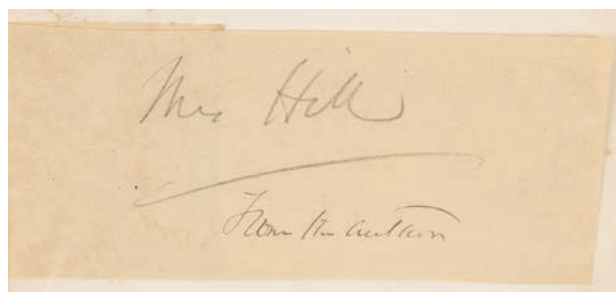 Mrs Hill
From the author